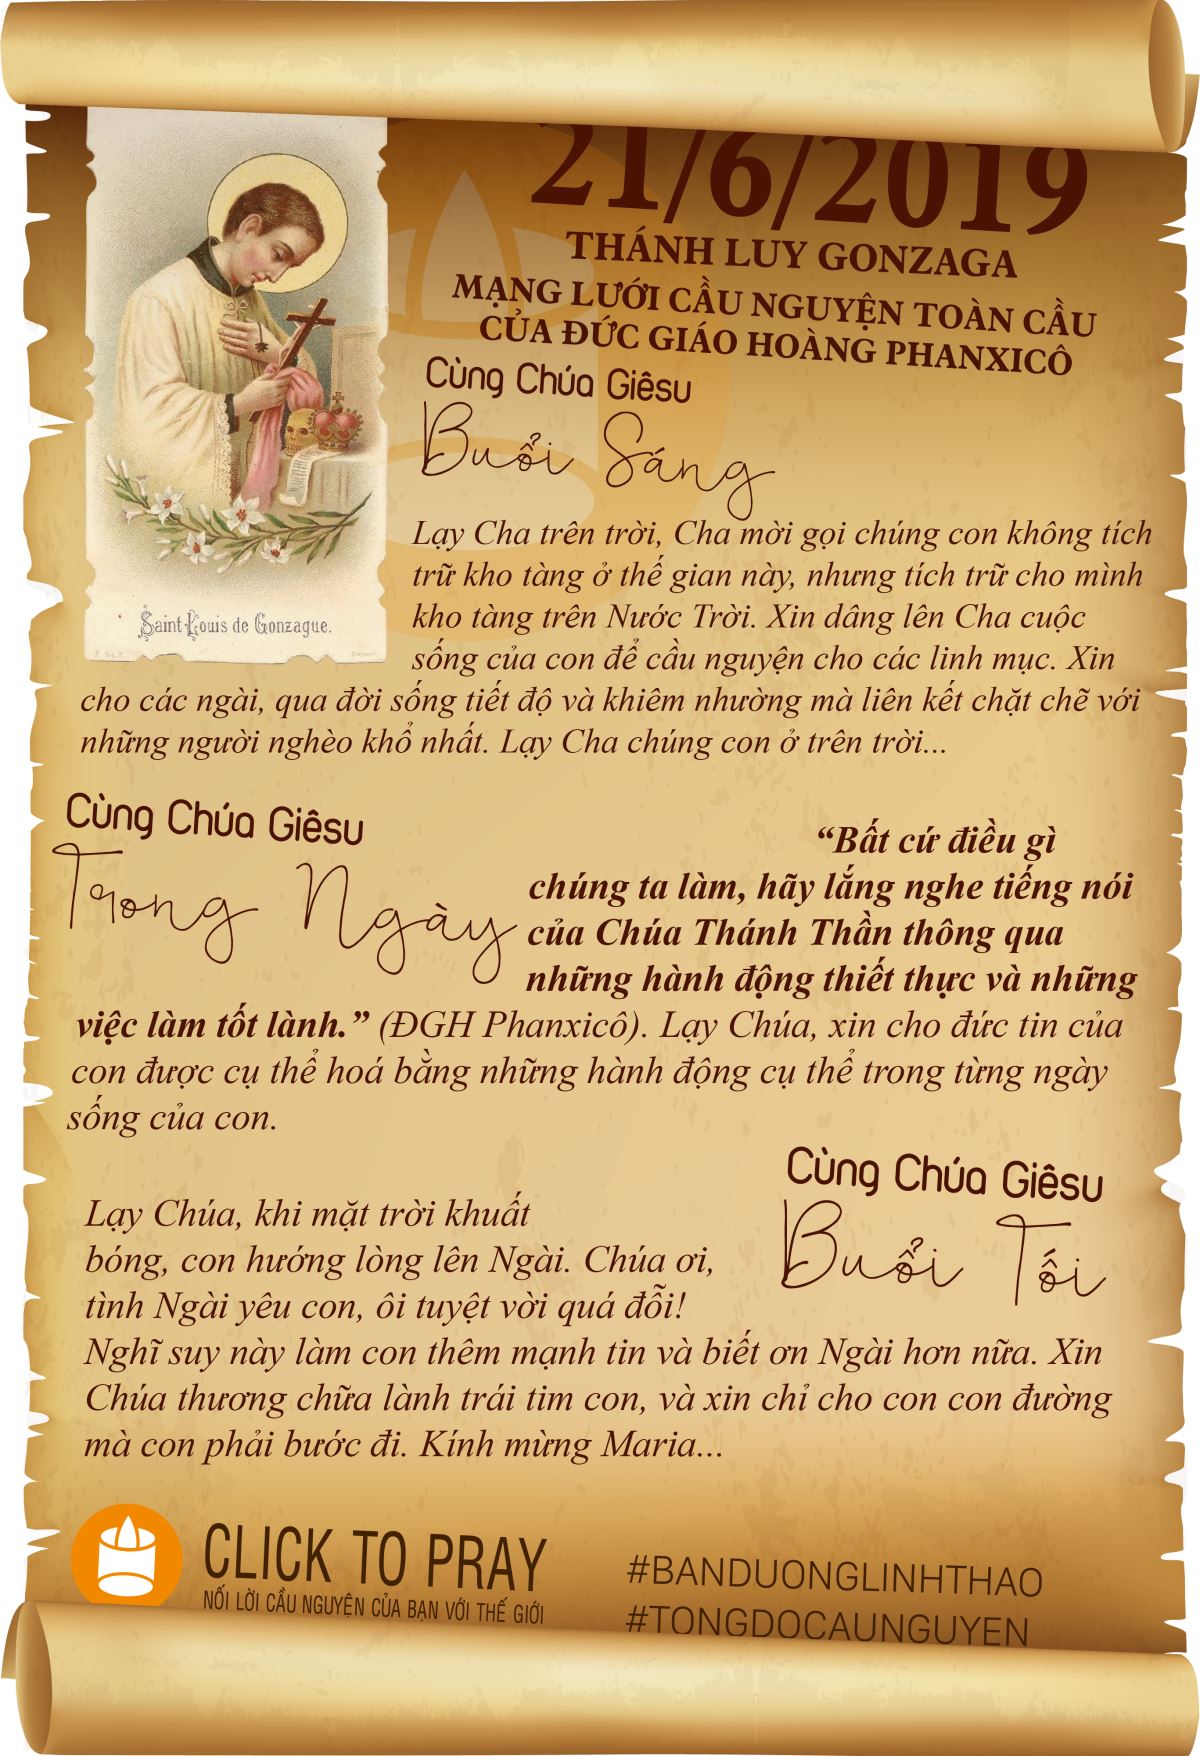 21/6/2019
THÁNH LUY GONZAGA
MẠNG LƯỚI CẦU NGUYỆN TOÀN CẦU
CỦA ĐỨC GIÁO HOÀNG PHANXICÔ
Cùng Chúa Giêsu
Buổi Sáng
Lạy Cha trên trời, Cha mời gọi chúng con không tích
trữ kho tàng ở thế gian này, nhưng tích trữ cho mình
kho tàng trên Nước Trời. Xin dâng lên Cha cuộc
sống của con để cầu nguyện cho các linh mục. Xin
cho các ngài, qua đời sống tiết độ và khiêm nhường mà liên kết chặt chẽ với
những người nghèo khổ nhất. Lạy Cha chúng con ở trên trời...
Saint Louis de Gonzague.
Cùng Chúa Giêsu
Trong Ngày
“Bất cứ điều gì
chúng ta làm, hãy lắng nghe tiếng nói
của Chúa Thánh Thần thông qua
những hành động thiết thực và những
việc làm tốt lành.” (ĐGH Phanxicô). Lạy Chúa, xin cho đức tin của
con được cụ thể hoá bằng những hành động cụ thể trong từng ngày
sống của con.
Cùng Chúa Giêsu
Buổi Tối
Lạy Chúa, khi mặt trời khuất
bóng, con hướng lòng lên Ngài. Chúa ơi,
tình Ngài yêu con, ôi tuyệt vời quá đỗi!
Nghĩ suy này làm con thêm mạnh tin và biết ơn Ngài hơn nữa. Xin
Chúa thương chữa lành trái tim con, và xin chỉ cho con con đường
mà con phải bước đi. Kính mừng Maria...
CLICK TO PRAY
NỐI LỜI CẦU NGUYỆN CỦA BẠN VỚI THẾ GIỚI
#BANDUONGLINHTHAO
#TONGDOCAUNGUYEN